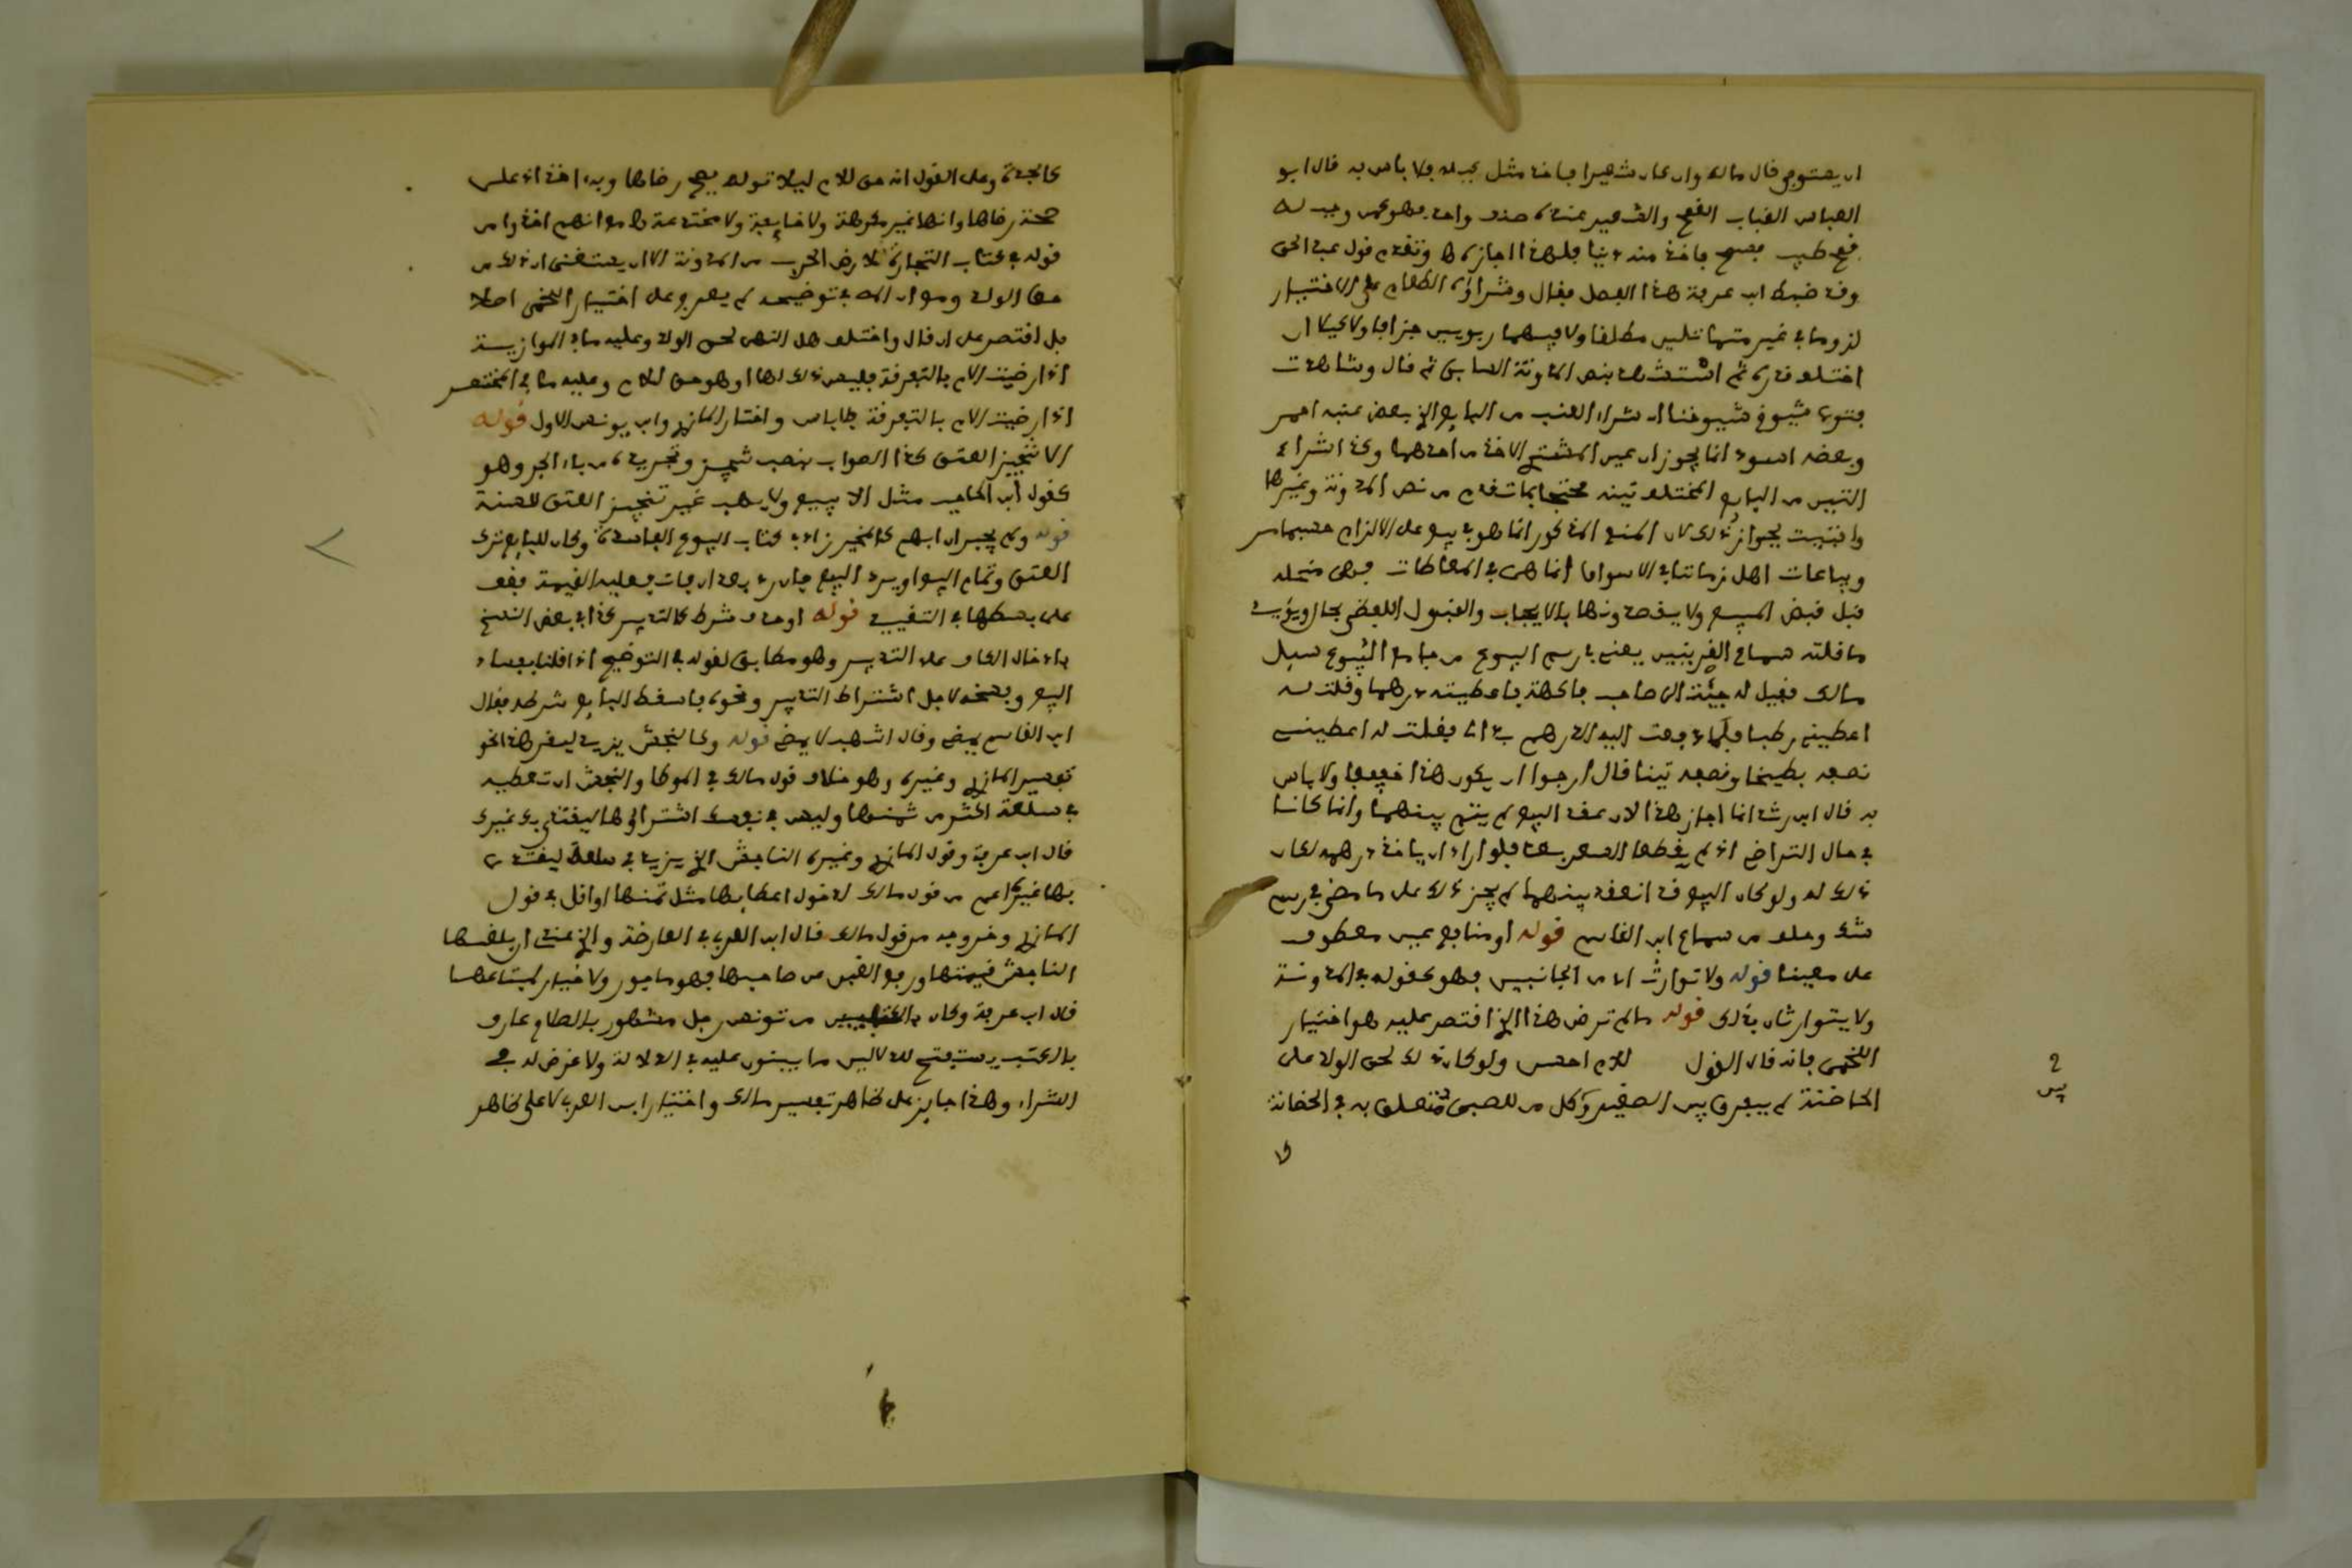 ان يستوجبه قال مالك وان كان شعيرا فاخذ مثل كيله فلا باس به قال ابو
العباس القباب القمح والشعير عنده صنف واحد فهو كمن وجب له
قمح طيب فصح فاخذ منه دنيا فلهذا اجازه وتقدم قول عبد الحق
وقد ضبط ابن عرفة هذا الفصل فقال وشراؤه الطعام على الاختيار
لزوما في غير متماثلين مطلقا ولا فيهما ربويين جزافا ولا كيلا ان
اختلف قدره ثم استشهد بنص المدونة السابق ثم قال وشاهدت
فتوى شيوخ شيوخنا ان شراء العنب من البايع الذي بعض عنبه احمر
وبعضه اسود انما يجوز ان عين المشتري الاخذ من احدهما وكذا شراء
التين من البايع المختلف تينه محتجا بما تقدم من نص المدونة وغيرها
وافتيت بجواز ذلك لان المنع المذكور انما هو في بيع على الالزام حسبما مر
وبياعات اهل زماننا في الاسواق انما هى في المعاطات فهى منحلة
قبل قبض المبيع ولا يقصدونها بالايجاب والقبول اللفظي بحال ويؤيد
ما قلته سماع القرينين يعني في رسم البيوع من جامع البيوع سيل
مالك فقيل له جيئت الى صاحب فاكهة فاعطيته درهما وقلت له
اعطيني رطبا فلما دفعت اليه الدرهم بدا لي فقلت له اعطيني
نصفه بطيخا ونصفه تينا قال ارجوا ان يكون هذا خفيفا ولا باس
به قال ابن رشد انما اجاز هذا لان عقد البيع لم يتم بينهما وانما كانا
في حال التراضي اذ لم يقطعا السعر بعد فلو اراد ان ياخذ درهمه لكان
ذلك له ولو كان البيع قد انعقد بينهما لم يجز ذلك على ما مضى في رسم
شك وحلف من سماع ابن القاسم قوله او منافع عين معطوف
على معينا قوله ولا توارث اي من الجانبين فهو كقوله في المدونة
ولا يتوارثان بذلك قوله ما لم ترض هذا الذي اقتصر عليه هو اختيار
اللخمي فانه قال القول للام احسن ولو كان ذلك لحق الولد على
الحاضنة لم يفرق بين الصغير وكل من للصبي متعلق به في الحضانة
كالجدة وعلى القول انه حق للام ليلا توله يصح رضاها وبه اخذ اذ على
صحة رضاها وانها غير مكرهة ولا خايفة ولا مختدعة هم انهم اخذوا من
قوله في كتاب التجارة لارض الحرب من المدونة الا ان يستغني ان ذلك من
حق الولد وموالك في توضيحه لم يعرج على اختيار اللخمي اصلا
بل اقتصر على ان قال واختلف هل النهي لحق الولد وعليه ما في الموازية
اذا رضيت الام بالتفرقة فليس ذلك لها او هو حق للام وعليه ما في المختصر
اذا رضيت الام بالتفرقة فلا باس واختار المازري وابن يونس الاول قوله
الا تنجيز العتق كذا الصواب بنصب تنجيز وتجريده من باء الجر وهو
كقول ابن الحاجب مثل الا يبيع ولا يهب غير تنجيز العتق للسنة
قوله ولم يجبر ان ابهم كالمخير زاد في كتاب البيوع الفاسدة وكان للبايع ترك
العتق وتمام البيع او يرد البيع فان رد بعد ان فات فعليه القيمة فقف
على بسطها في التقييد قوله او حذف شرط كالتدبير كذا في بعض النسخ
بادخال الكاف على التدبير وهو مطابق لقوله في التوضيح اذا قلنا بفساد
البيع وبفسخه لاجل اشتراط التدبير ونحوه فاسقط البايع شرطه فقال
ابن القاسم يمضي وقال اشهب لا يمضي قوله وكالنجش يزيد ليغر هذا نحو
تفسير المازري وغيره وهو خلاف قول مالك في الموطا والنجش ان تعطيه
في سلعة اكثر من ثمنها وليس في نفسك اشتراؤها ليقتدي بك غيرك
قال ابن عرفة وقول المازري وغيره الناجش الذي يزيد في سلعة ليقتدى
بها غيره اعم من قول مالك لدخول اعطايها مثل ثمنها او اقل في قول
المازري وخروجه من قول مالك قال ابن العربي في العارضة والذي عندي ان بلغها
الناجش قيمتها ورفع الغبن عن صاحبها فهو ماجور ولا خيار لمبتاعها
قال ابن عرفة وكان من تونس رجل مشهور بالصلاح عارف
بالكتب يستفتح للدلالين ما يبنون عليه في الدلالة ولا غرض له في
الشراء وهذا جايز على ظاهر تفسير مالك واختيار ابن العربي لا على ظاهر